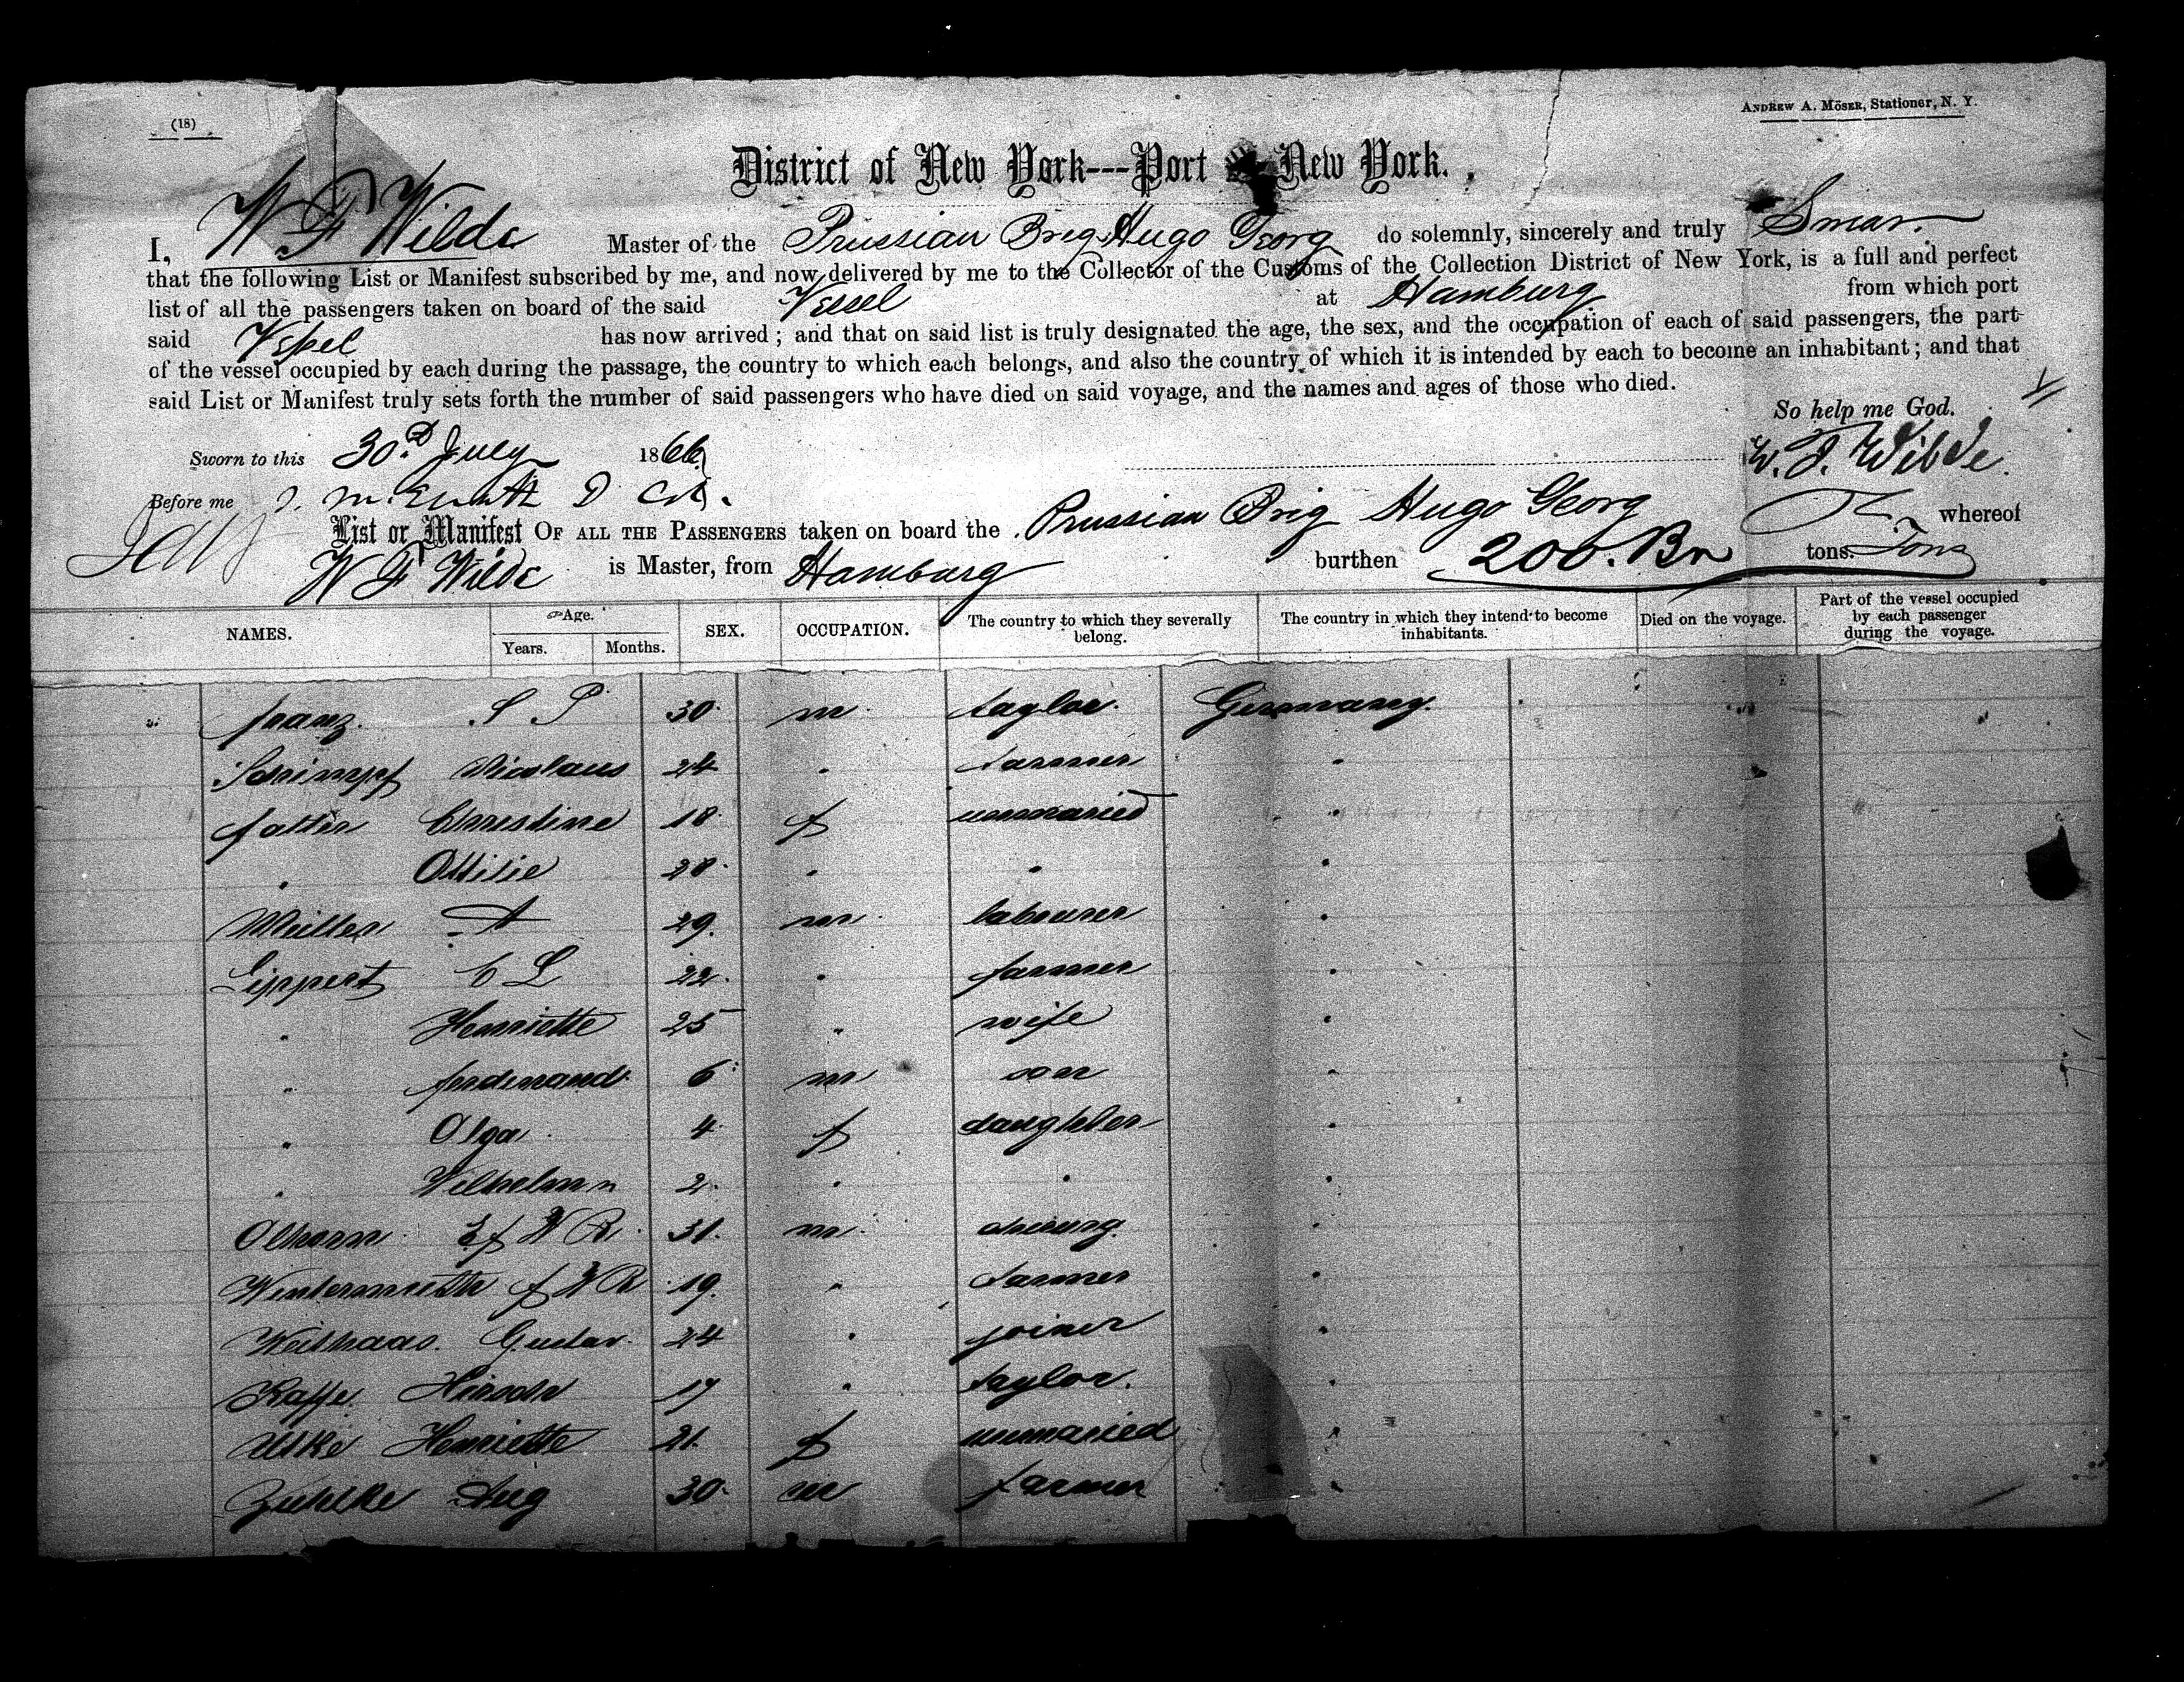 (18)
ANDREW A. MÖSER, Stationer, N. Y.
District of New York---Port New York.
I, W F Wilde Master of the Prussian Brig Hugo Georg do solemnly, sincerely and truly Swear
that the following List or Manifest subscribed by me, and now delivered by me to the Collector of the Customs of the Collection District of New York, is a full and perfect
list of all the passengers taken on board of the said Vessel at Hamburg from which port
said Vessel has now arrived; and that on said list is truly designated the age, the sex, and the occupation of each of said passengers, the part
of the vessel occupied by each during the passage, the country to which each belongs, and also the country of which it is intended by each to become an inhabitant; and that
said List or Manifest truly sets forth the number of said passengers who have died on said voyage, and the names and ages of those who died.
So help me God.
Sworn to this 30d July 1866 W. F. Wilde
Before me
List or Manifest OF ALL THE PASSENGERS taken on board the Prussian Brig Hugo Georg whereof
W F Wilde is Master, from Hamburg burthen 200. Br tons. Tons
NAMES. Age. Years. Months. SEX. OCCUPATION. The country to which they severally belong. The country in which they intend to become inhabitants. Died on the voyage. Part of the vessel occupied by each passenger during the voyage.
franz. S P 30 m taylor. Germany.
Schimpf Nicolaus 24 " farmer "
Christine 18 f unmaried "
" Ottilie 28 " " "
Müller A 29. m labourer "
Lippert C L 22 " farmer "
" Henriette 25 " wife "
" ferdinand 6 m son "
" Olga 4 f daughter "
" Wilhelmn 2 " " "
Alhorn 31. m "
Wintermuth f W R 19. " farmer "
Weithaas. Gustav 24 " joiner "
Kaffe. Hirsch 17 " taylor. "
Utke Henriette 21. f unmaried "
Zuhlke Aug 30 m farmer "